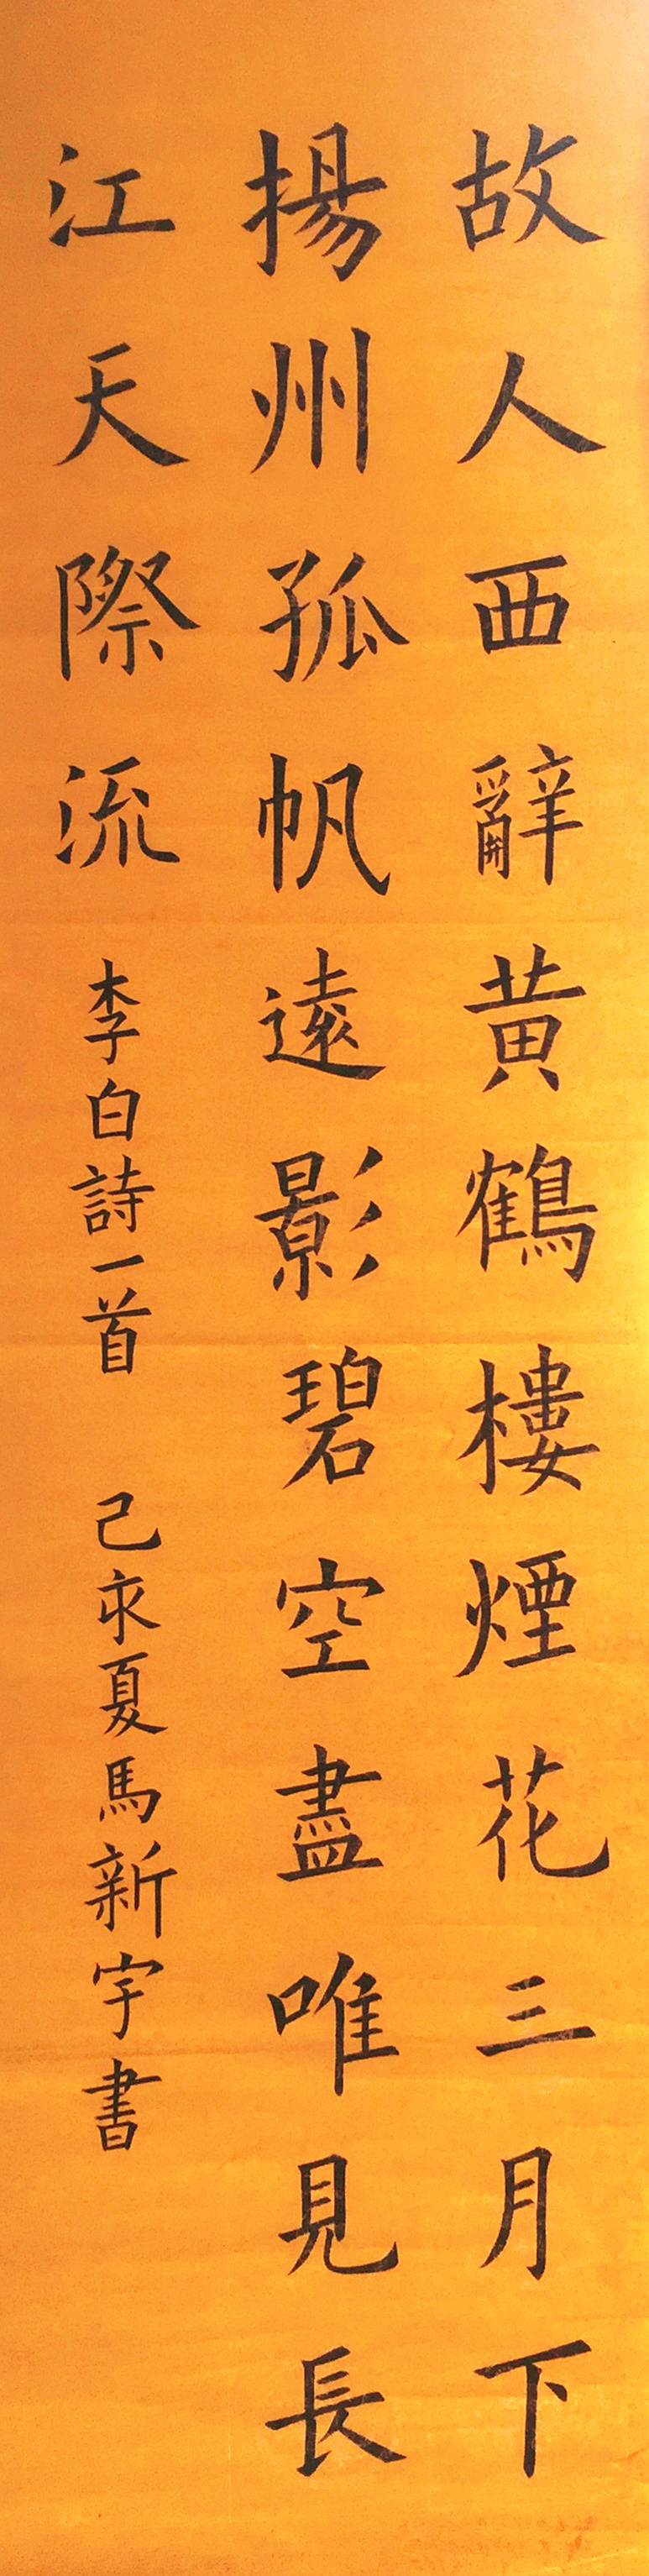 故人西辭黄鶴樓煙花三月下
揚州孤帆遠影碧空盡唯見長
江天際流 李白詩一首 己亥夏馬新宇書